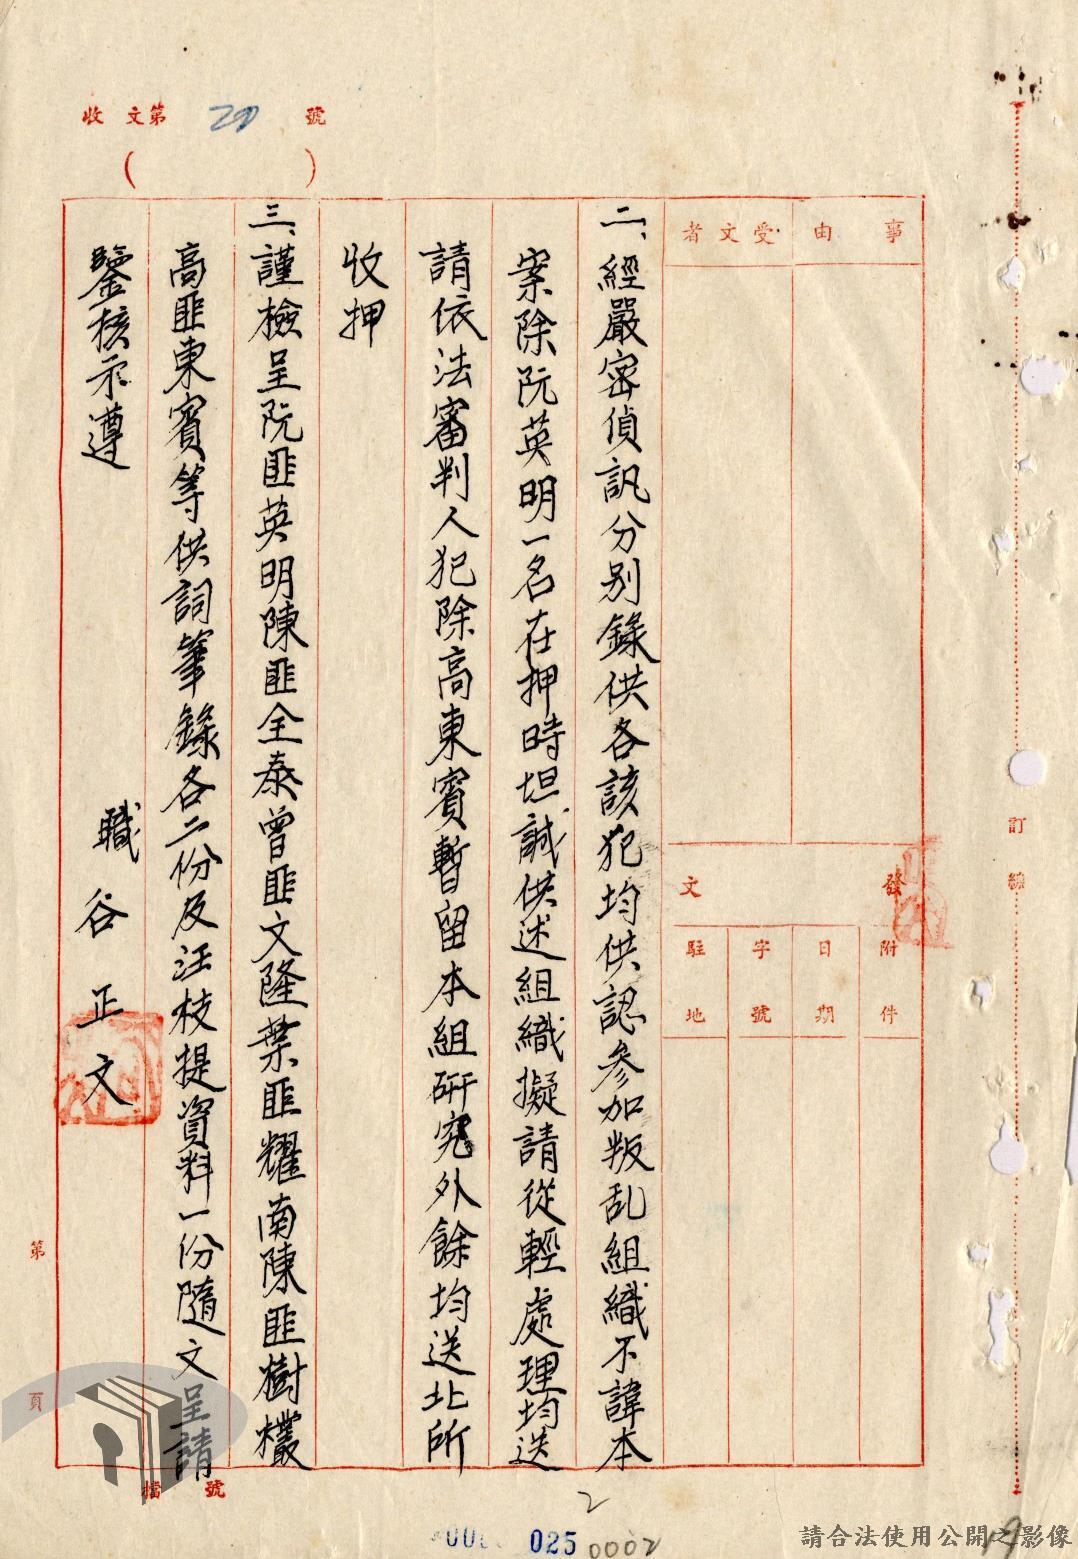 收文第 20 號
( )
事由
受文者
發文
附件
日期
字號
駐地
二、經嚴密偵訊分別錄供各該犯均供認參加叛乱組織不諱本
案除阮英明一名在押時坦誠供述組織擬請從輕處理均送
請依法審判人犯除高東賓暫留本組研究外餘均送北所
收押
三、謹檢呈阮匪英明陳匪全泰曾匪文隆葉匪耀南陳匪樹欉
高匪東賓等供詞筆錄各二份及汪枝提資料一份隨文呈請
鑒核示遵
職谷正文
訂線
第頁
檔號
2
025
0002
19
請合法使用公開之影像